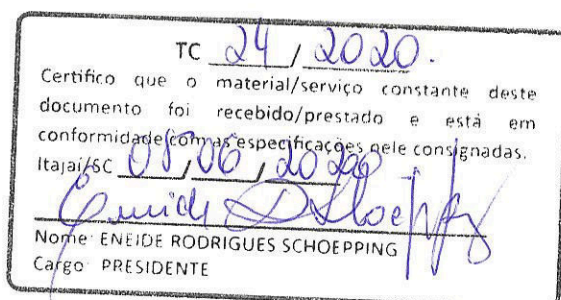 TC 24 / 2020.
Certifico que o material/serviço constante deste
documento foi recebido/prestado e está em
conformidade com as especificações nele consignadas.
Itajaí/SC 05, 06, 2020
Eneide D Schoepping
Nome: ENEIDE RODRIGUES SCHOEPPING
Cargo: PRESIDENTE